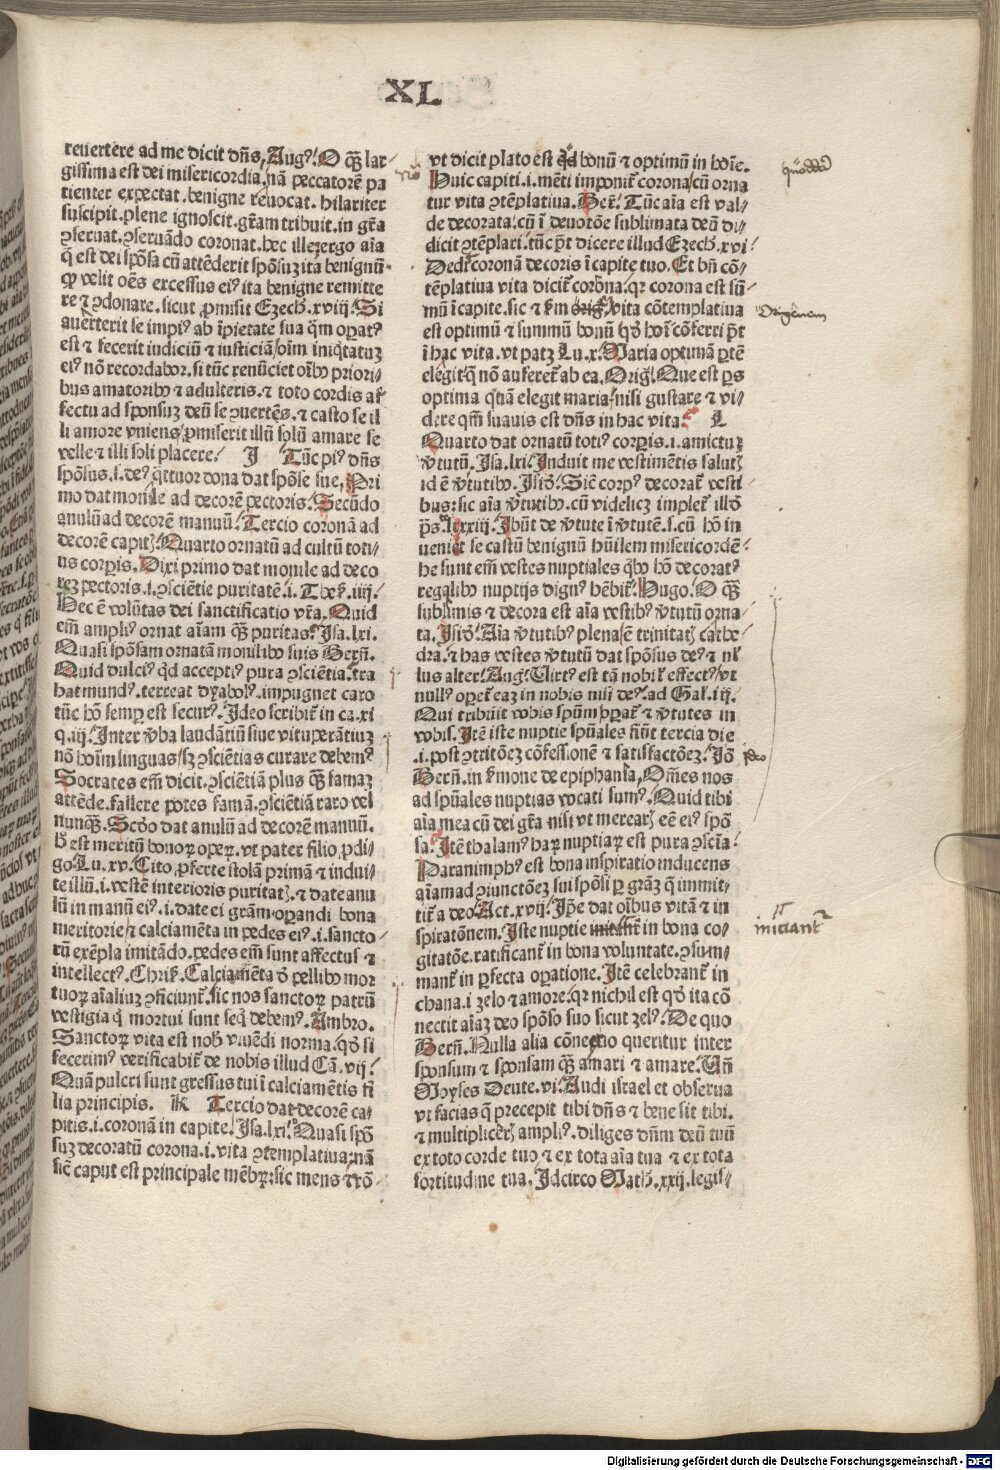 XL
reuertere ad me dicit dñs, Augꝰ. O qͣ̃ lar⸗
gissima est dei misericordia. nã peccatorẽ pa
tienter expectat. benigne reuocat. hilariter
suscipit. plene ignoscit. grãm tribuit. in grã
ꝯseruat. ꝯseruãdo coronat. hec ille. ergo aĩa
q̃ est dei spõsa cũ attẽderit spõsuꝫ ita benignũ
ꝙ velit oẽs excessus eiꝰ ita benigne remitte
re ⁊ ꝯdonare. sicut ꝓmisit Ezech. xviij. Si
auerterit se impiꝰ ab ĩpietate sua
est ⁊ fecerit iudiciũ ⁊ iusticiã oĩm iniq̃tatuꝫ
eiꝰ nõ recordabor. si tũc renũciet oĩbꝰ priori⸗
bus amatoribꝰ ⁊ adulteris. ⁊ toto cordis af
fectu ad sponsuꝫ deũ se ꝯuertẽs. ⁊ casto se il
li amore vniens ꝓmiserit illũ solũ amare se
velle ⁊ illi soli placere. I Tũc piꝰ dñs
spõsus. s. deꝰ q̃ttuor dona dat spõse sue. Pri
mo dat monile ad decorẽ pectoris. Secũdo
anulũ ad decorẽ manuũ. Tercio coronã ad
decorẽ capitꝭ. Quarto ornatũ ad cultũ toti⸗
us corꝑis. Dixi primo dat monile ad deco
reꝫ pectoris. i. ꝯsciẽtie puritatẽ. i. Theẜ. iiij.
Hec ẽ volũtas dei sanctificatio vr̃a. Quid
em̃ ampliꝰ ornat aĩam qͣ̃ puritas. Isa. lxi.
Quasi spõsam ornatã monilibꝰ suis Berñ.
Quid dulciꝰ q̃d acceptiꝰ pura ꝯsciẽtia. tra
hat mundꝰ. terreat dyabolꝰ. impugnet caro
tũc hõ semꝑ est securꝰ. Ideo scribit̃ in ca. xi
q. iij. Inter v̾ba laudãtiũ siue vituperãtiuꝫ
nõ hoĩm linguas sꝫ ꝯsciẽtias curare debemꝰ
Socrates em̃ dicit. ꝯsciẽtiã plus qͣ̃ famaꝫ
attẽde. fallere potes famã. ꝯsciẽtiã raro vel
nunqͣ̃. Scðo dat anulũ ad decorẽ manuũ.
ħ est meritũ bonoꝝ oꝑeꝝ. vt pater filio ꝓdi⸗
go. Lu. xv. Cito ꝓferte stolã primã ⁊ indui⸗
te illũ. i. vestẽ interioris puritatꝭ. ⁊ date anu
lũ in manũ eiꝰ. i. date ei grãm oꝑandi bona
meritorie ⁊ calciamẽta in pedes eiꝰ. i. sancto⸗
rũ exẽpla imitãdo. pedes em̃ sunt affectus ⁊
intellectꝰ. Chriẜ. Calciamẽta ð pellibꝰ mor
tuoꝝ aĩaliuꝫ ꝯficiunt̃. sic nos sanctoꝝ patrũ
vestigia q̃ mortui sunt seq̃ debemꝰ. Ambro.
Sanctoꝝ vita est nob̾ viuẽdi norma. qð si
fecerimꝰ verificabit̃ de nobis illud Cã. vij.
Quã pulcri sunt gressus tui ĩ calciamẽtis fi
lia principis. K Tercio dat decorẽ ca⸗
pitis. i. coronã in capite. Isa. lxi. Quasi spõ
suꝫ decoratũ corona. i. vita ꝯtemplatiua. nã
sic̃ caput est principale mẽbꝝ. sic mens ⁊ rõ
vt dicit plato est qð bonũ ⁊ optimũ in hoĩe.
Huic capiti. i. mẽti imponit̃ corona cũ orna
tur vita ꝯtẽplatiua. Beẜ. Tũc aĩa est val⸗
de decorata. cũ ĩ deuotõe sublimata deũ di⸗
dicit ꝯtẽplari. tũc põt dicere illud Ezech. xvi
Dedit̃ coronã decoris ĩ capite tuo. Et bñ cõ⸗
tẽplatiua vita dicit̃ corona. qꝛ corona est sũ⸗
mũ ĩ capite. sic ⁊ ẜm orig̃. vita cõtemplatiua
est optimũ ⁊ summũ bonũ qð hoĩ cõferri põt
ĩ hac vita. vt patꝫ Lu. x. Maria optimã ꝑtẽ
elegit q̃ nõ auferet̃ ab ea. Orig̃. Que est ꝑs
optima quã elegit maria. nisi gustare ⁊ vi⸗
dere qm̃ suauis est dñs in hac vita. L
Quarto dat ornatũ totiꝰ corꝑis. i. amictuꝫ
v̾tutũ. Isa. lxi. Induit me vestimẽtis salutꝭ
id ẽ v̾tutibꝰ. Isið. Sic̃ corpꝰ decorat̃ vesti
bus. sic aĩa v̾tutibꝰ. cũ videlicꝫ implet̃ illð
pš. lxxxiij. Ibũt de v̾tute ĩ v̾tutẽ. s. cũ hõ in
uenit̃ se castũ benignũ hũilem misericordẽ
he sunt em̃ vestes nuptiales q̃bꝰ hõ decoratꝰ
regalibꝰ nuptijs dignꝰ hẽbit̃. Hugo. O qͣ̃
sublimis ⁊ decora est aĩa vestibꝰ v̾tutũ orna
ta. Isið. Aĩa v̾tutibꝰ plena ẽ trinitatꝭ cathe
dra. ⁊ has vestes v̾tutũ dat spõsus deꝰ ⁊ nl̾
lus alter. Aug. Virtꝰ est tã nobiľ effectꝰ vt
nullꝰ oꝑet̃ eaꝫ in nobis nisi deꝰ. ad Gal̾. iij.
Qui tribuit vobis spũm ⁊ v̾tutes in
vobis. Itẽ iste nuptie spũales fiũt tercia die
.i. post ꝯtritõeꝫ cõfessionẽ ⁊ satisfactõeꝫ. Iõ
Berñ. in ẜmone de epiphania. Om̃es nos
ad spũales nuptias vocati sumꝰ. Quid tibi
aĩa mea cũ dei grã nisi vt merearꝭ eẽ eiꝰ spõ
sa. Itẽ thalamꝰ haꝝ nuptiaꝝ est pura ꝯsciẽtia.
Paranimphꝰ est bona inspiratio inducens
aĩam ad ꝯiunctõeꝫ sui spõsi ꝑ grãꝫ q̃ immit⸗
tit̃ a deo. Act. xvij. Ip̃e dat oĩbus vitã ⁊ in
spiratõnem. Iste nuptie in bona co⸗
gitatõe. ratificant̃ in bona voluntate. ꝯsum⸗
mant̃ in ꝑfecta oꝑatione. Itẽ celebrant̃ in
chana. i zelo ⁊ amore. qꝛ nichil est qð ita cõ
nectit aĩaꝫ deo spõso suo sicut zelꝰ. De quo
Berñ. Nulla alia cõnexio queritur inter
sponsum ⁊ sponsam qͣ̃ amari ⁊ amare. Uñ
Moyses Deute. vi. Audi israel et obserua
vt facias q̃ precepit tibi dñs ⁊ bene sit tibi.
⁊ multipliceꝭ ampliꝰ. diliges dñm deũ tuũ
ex toto corde tuo ⁊ ex tota aĩa tua ⁊ ex tota
fortitudine tua. Idcirco Math. xxij. legi⸗
quoddã
Origenem
ideo
iniciant̃
Digitalisierung gefördert durch die Deutsche Forschungsgemeinschaft - DFG